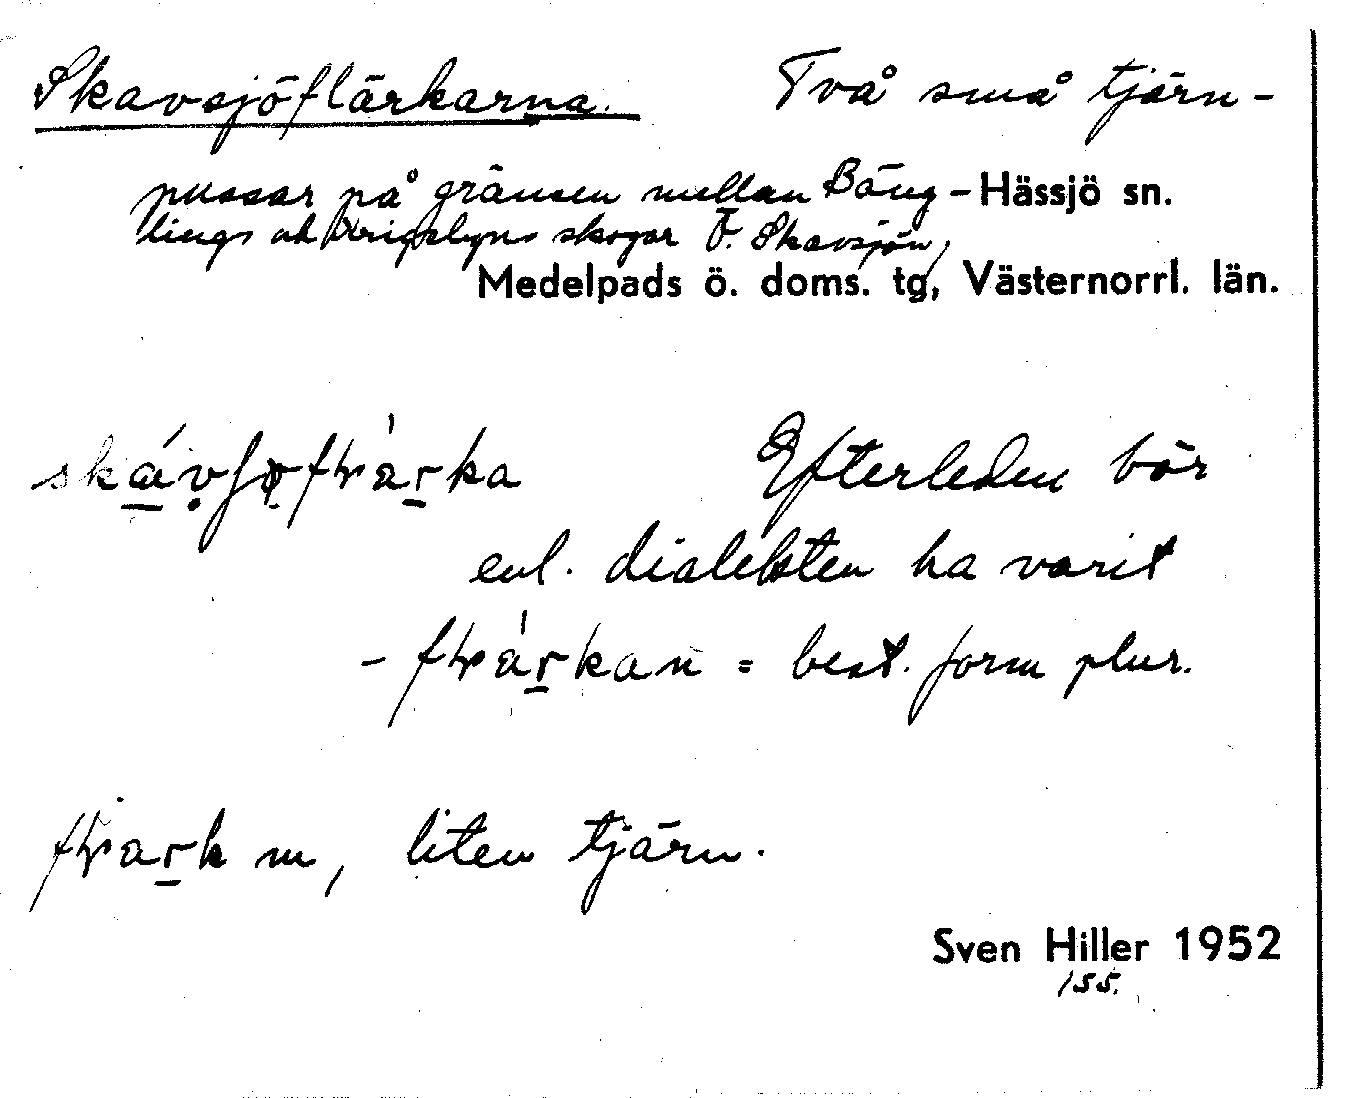 Skavsjöflärkarna. Två små tjärn-
pussar på gränsen mellan Bäng- Hässjö sn.
lings och Krigsbyns skogar Ö. Skavsjön,
Medelpads ö. doms. tg, Västernorrl. län.
Efterleden bör
enl. dialekten ha varit
= best. form plur.
m, liten tjärn.
Sven Hiller 1952
155.